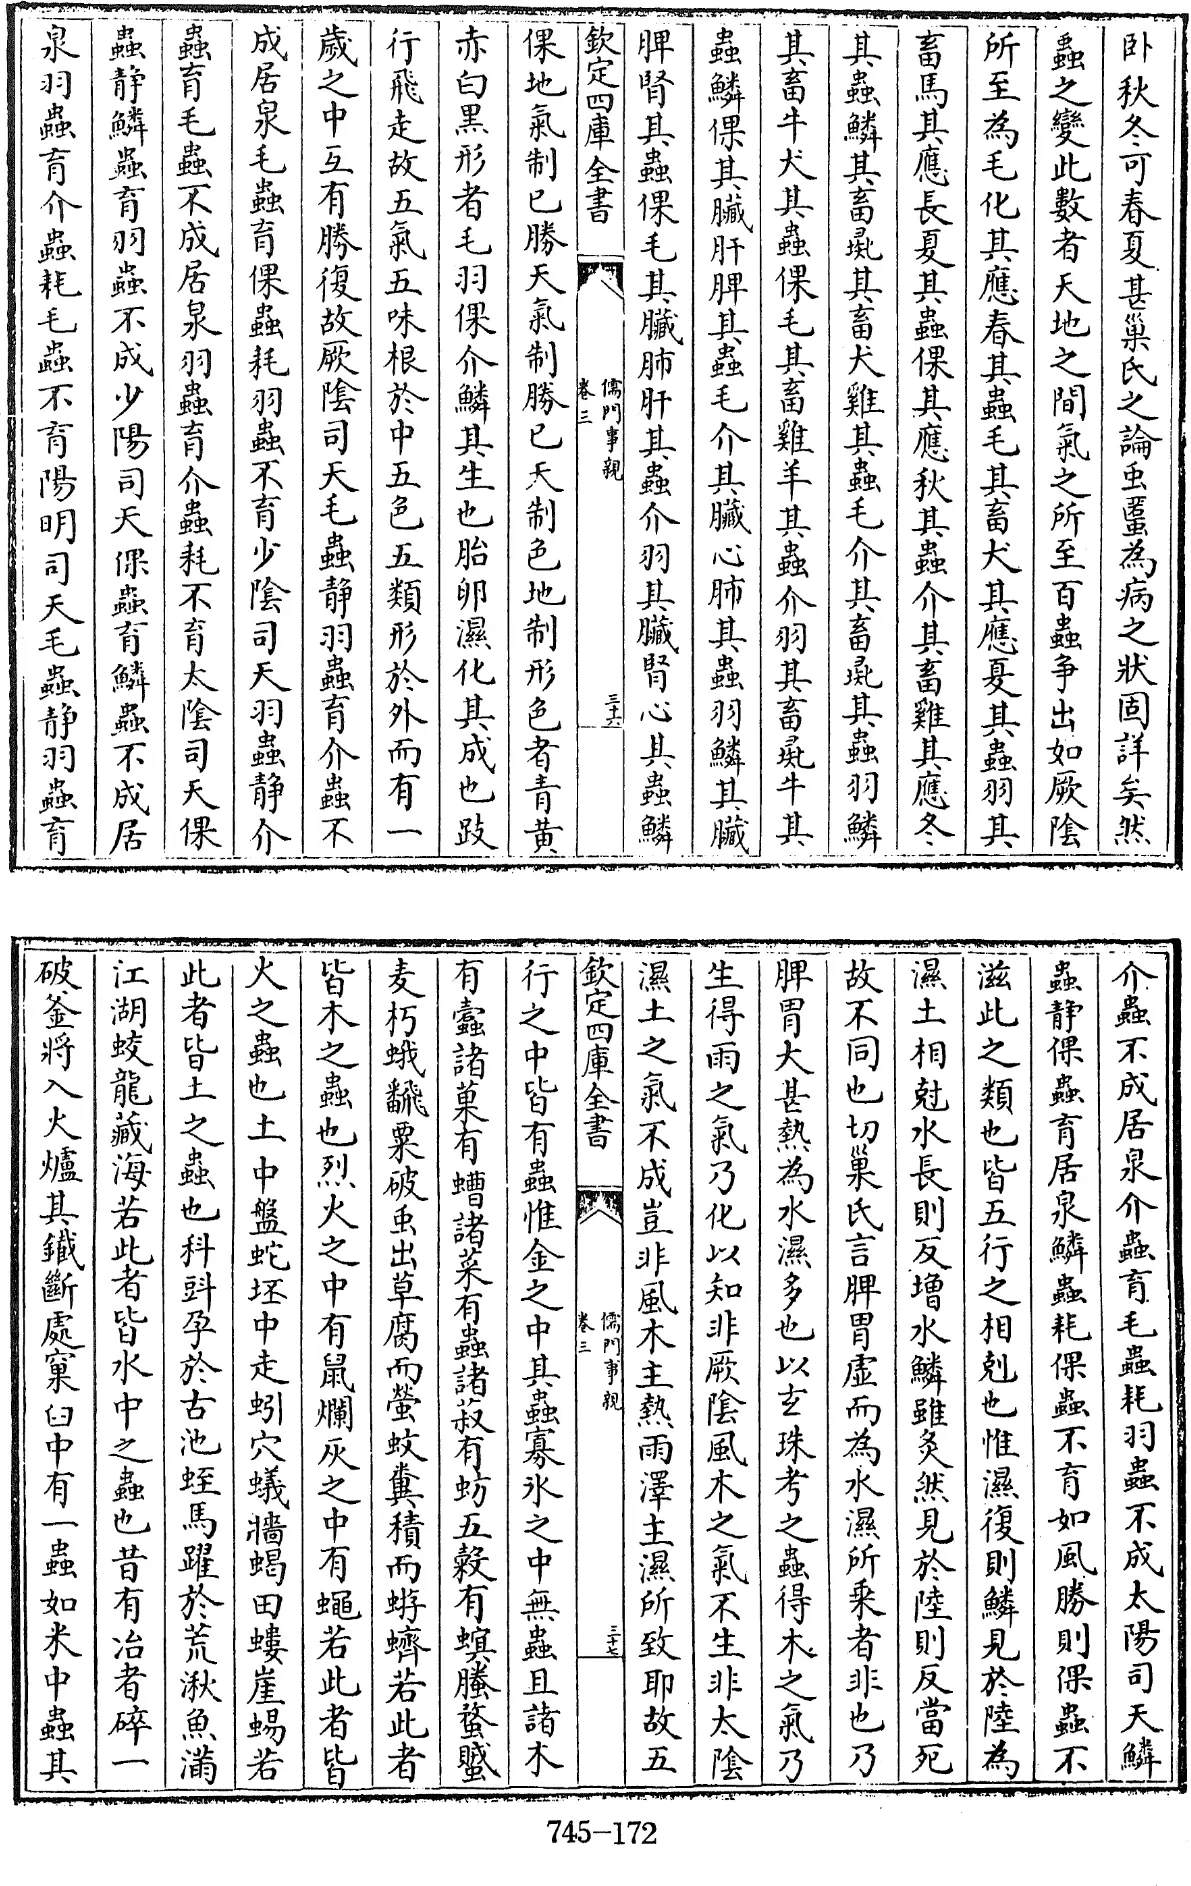 卧秋冬可春夏甚巢氏之論虫䘌為病之狀固詳矣然
蟲之變此數者天地之間氣之所至百蟲争出如厥陰
所至為毛化其應春其蟲毛其畜犬其應夏其蟲羽其
畜馬其應長夏其蟲倮其應秋其蟲介其畜雞其應冬
其蟲鱗其畜彘其畜犬雞其蟲毛介其畜彘其蟲羽鱗
其畜牛犬其蟲倮毛其畜雞羊其蟲介羽其畜彘牛其
蟲鱗倮其臟肝脾其蟲毛介其臟心肺其蟲羽鱗其臟
脾腎其蟲倮毛其臟肺肝其蟲介羽其臟腎心其蟲鱗
欽定四庫全書
儒門事親
卷三
三十六
倮地氣制已勝天氣制勝已天制色地制形色者青黄
赤白黑形者毛羽倮介鱗其生也胎卵濕化其成也跂
行飛走故五氣五味根於中五色五類形於外而有一
歲之中互有勝復故厥陰司天毛蟲静羽蟲育介蟲不
成居泉毛蟲育倮蟲耗羽蟲不育少陰司天羽蟲静介
蟲育毛蟲不成居泉羽蟲育介蟲耗不育太陰司天倮
蟲静鱗蟲育羽蟲不成少陽司天倮蟲育鱗蟲不成居
泉羽蟲育介蟲耗毛蟲不育陽明司天毛蟲静羽蟲育
介蟲不成居泉介蟲育毛蟲耗羽蟲不成太陽司天鱗
蟲静倮蟲育居泉鱗蟲耗倮蟲不育如風勝則倮蟲不
滋此之類也皆五行之相剋也惟濕復則鱗見於陸為
濕土相尅水長則反增水鱗雖多然見於陸則反當死
故不同也切巢氏言脾胃虚而為水濕所乘者非也乃
脾胃大甚熱為水濕多也以玄珠考之蟲得木之氣乃
生得雨之氣乃化以知非厥陰風木之氣不生非太陰
濕土之氣不成豈非風木主熱雨澤主濕所致耶故五
欽定四庫全書
儒門事親
卷三
三十七
行之中皆有蟲惟金之中其蟲寡氷之中無蟲且諸木
有蠹諸菓有螬諸菜有蟲諸菽有蚄五穀有螟螣蝥蠈
麦朽蛾飜粟破虫出草腐而螢蚊糞積而蝣蠐若此者
皆木之蟲也烈火之中有鼠爛灰之中有蠅若此者皆
火之蟲也土中盤蛇坯中走蚓穴蟻牆蝎田螻崖蜴若
此者皆土之蟲也科蚪孕於古池蛭馬躍於荒湫魚滿
江湖蛟龍藏海若此者皆水中之蟲也昔有冶者碎一
破釜將入火爐其鐵斷處窠臼中有一蟲如米中蟲其
745-172